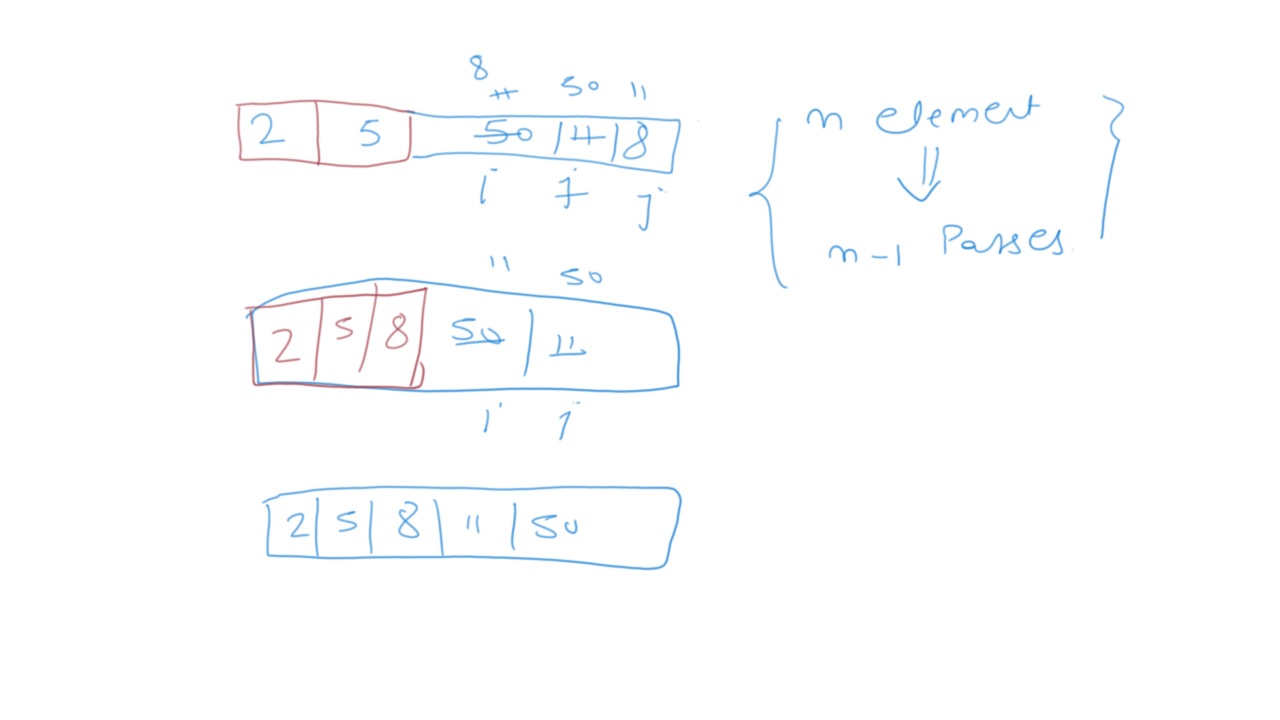 8 11 50 11
2 5 50 11 8
i j j
n element
⇓
n-1 Passes
11 50
2 5 8 50 11
i j
2 5 8 11 50